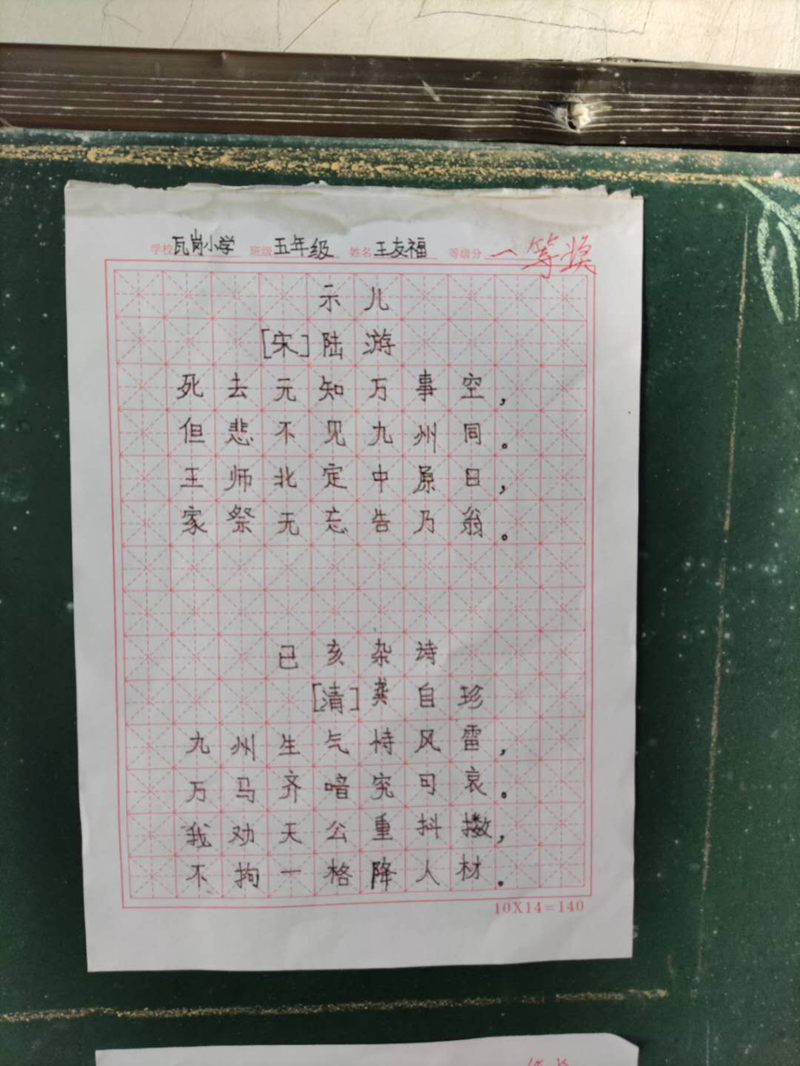 学校 瓦岗小学 班级 五年级 姓名 王友福 等级分 一等奖
示儿
[宋]陆游
死去元知万事空，
但悲不见九州同。
王师北定中原日，
家祭无忘告乃翁。
己亥杂诗
[清]龚自珍
九州生气恃风雷，
万马齐喑究可哀。
我劝天公重抖擞，
不拘一格降人材。
10X14=140